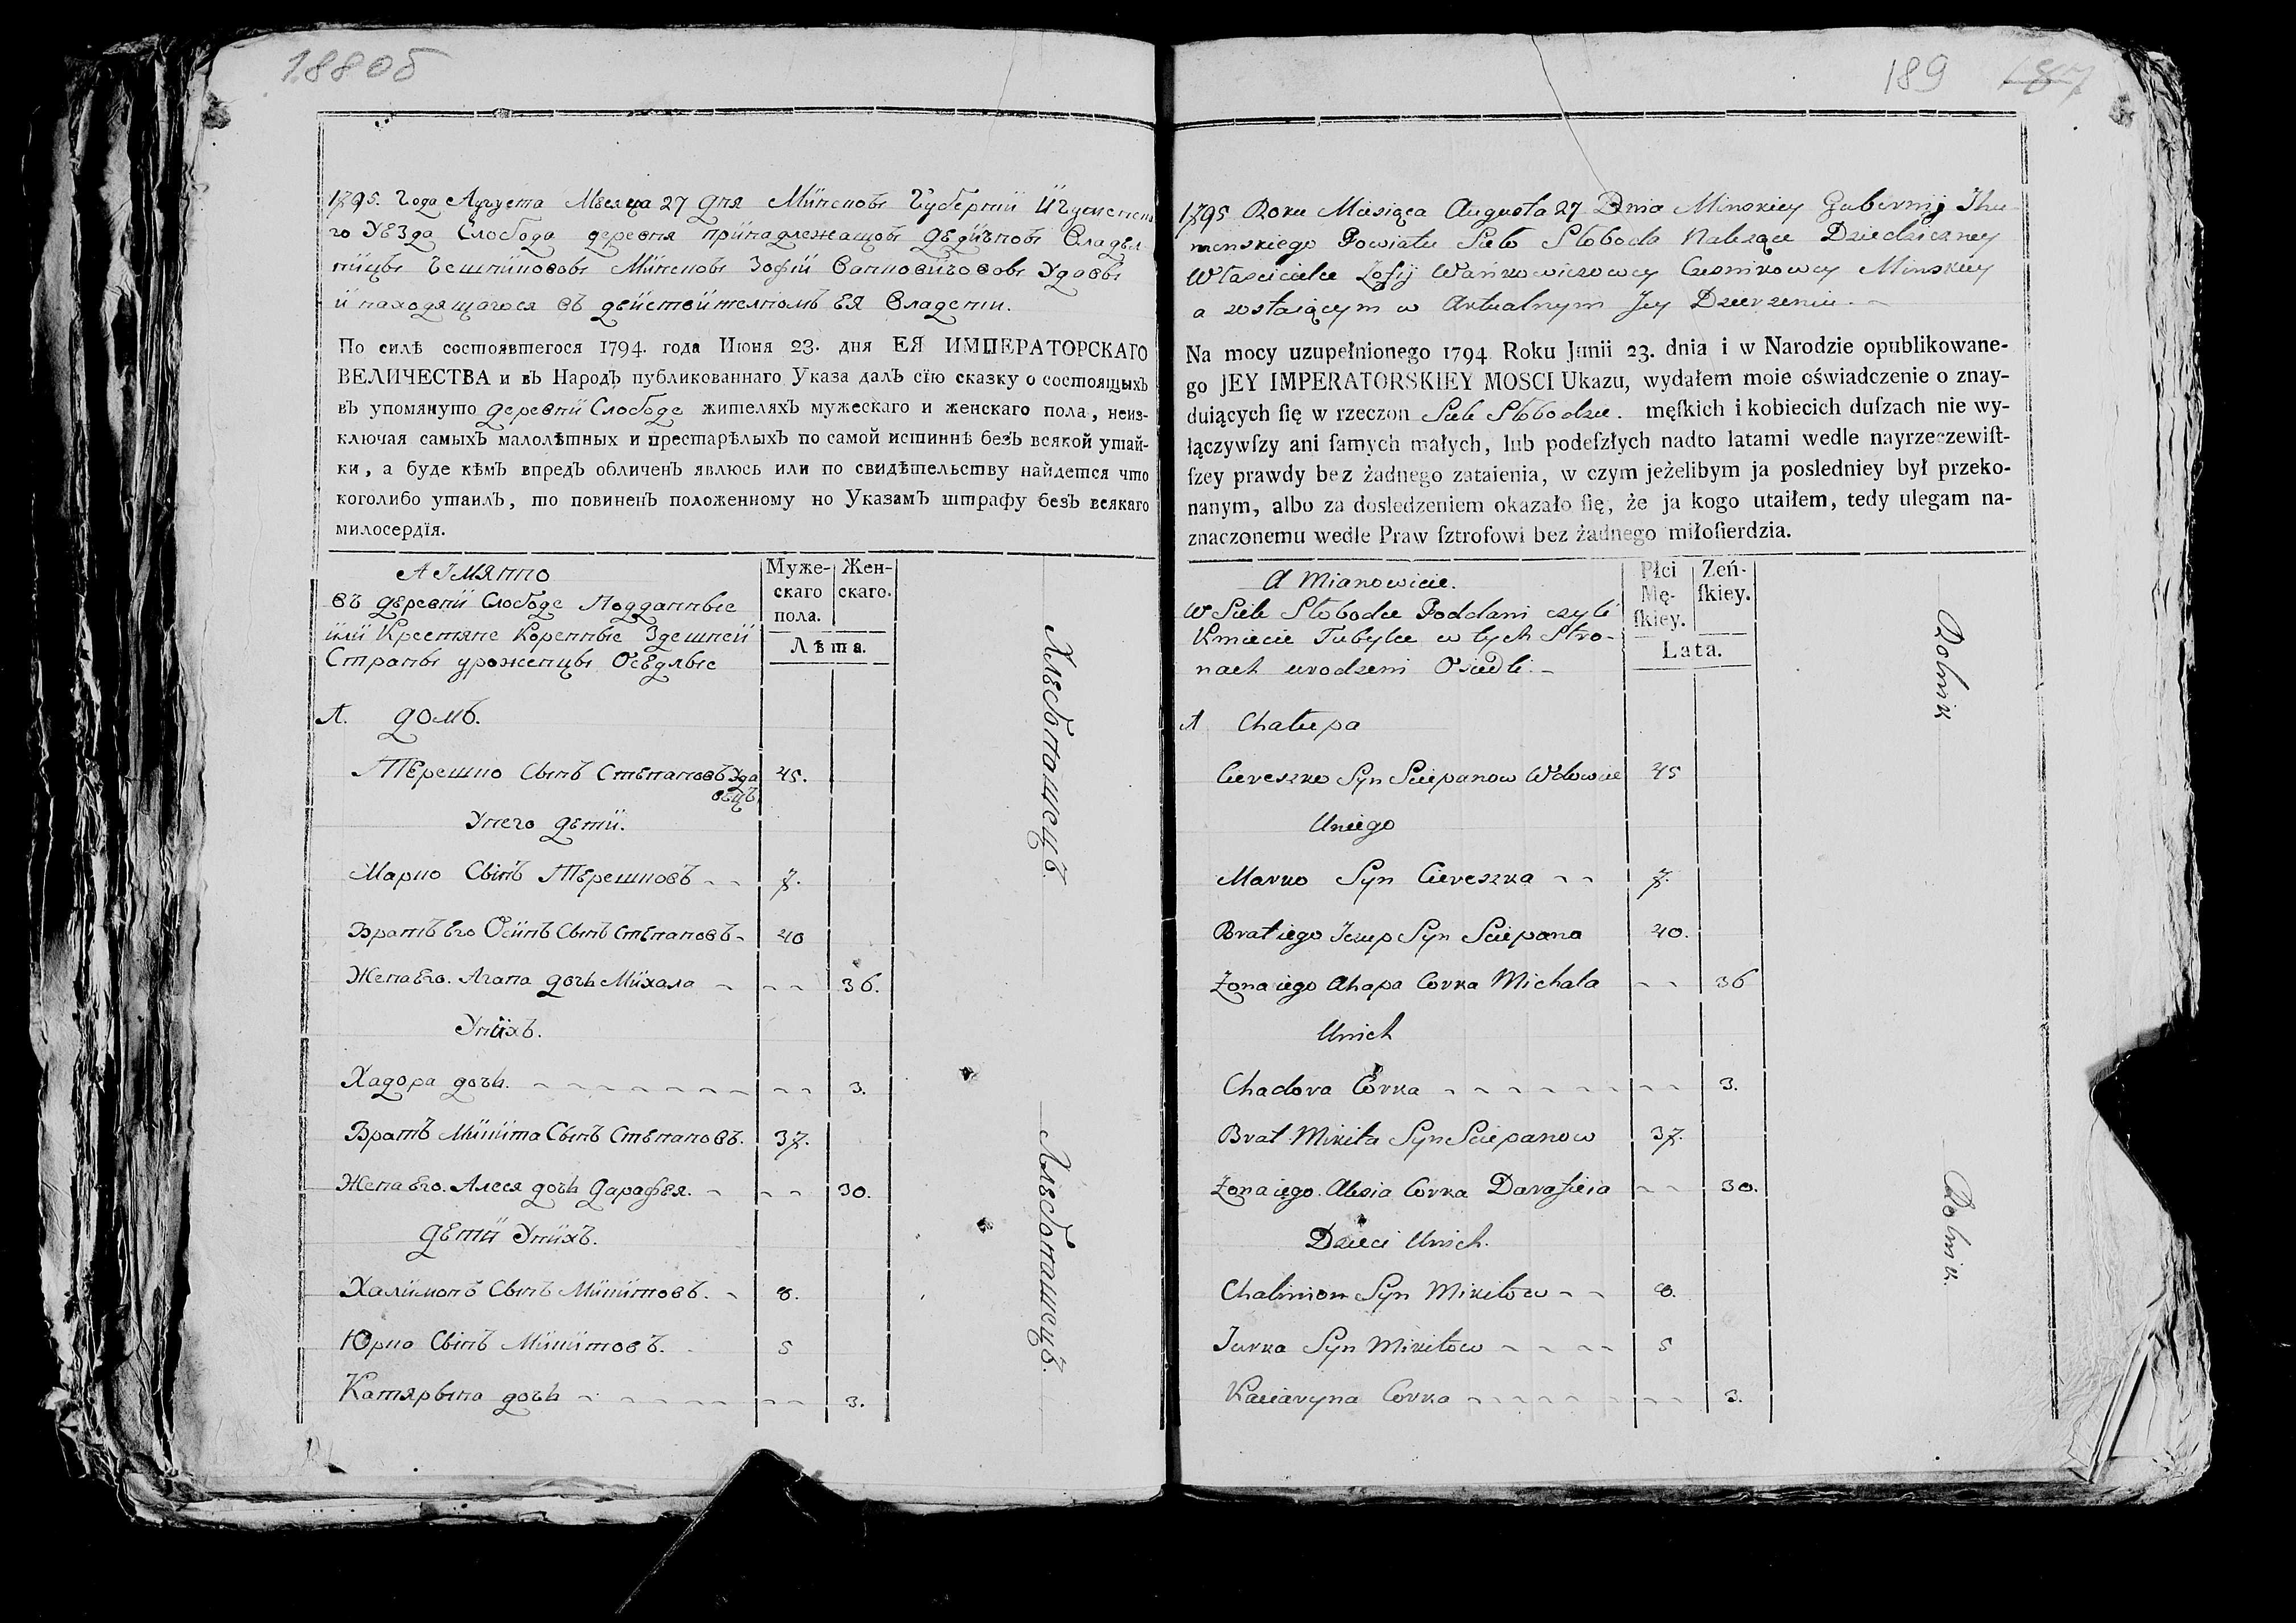 188об
1795. года Августа Месяца 27 дня Минской Губерний Игуменска
го Уезда Слобода деревня принадлежащой дедичной Владел
ницы Чешниковой Минской Зофии Ванковичовой Удавы
и находящагося въ действителномъ ея Владении.
По силѣ состоявшегося 1794. года Июня 23. дня ЕЯ ИМПЕРАТОРСКАГО
ВЕЛИЧЕСТВА и въ Народъ публикованнаго Указа далъ сїю сказку о состоящыхъ
въ упомянуто деревни Слободе жителяхъ мужескаго и женскаго пола, неиз-
ключая самыхъ малолѣтныхъ и престарѣлыхъ по самой истиннѣ безъ всякой утай-
ки, а буде кѣмъ впредъ обличенъ явлюсь или по свидѣтельству найдется что
коголибо утаилъ, то повиненъ положенному по Указамъ штрафу безъ всякаго
милосердїя.
А Імянно
въ деревни Слободе Подданные
или Крестяне Коренные Здешней
Страны уроженцы Оседлые
Муже-
скаго
пола.
Жен-
скаго.
Лѣта.
Хлебопашецъ.
А. домъ.
Терешко Сынъ Степановъ Уда
вецъ 45.
Унего дети.
Марко Сынъ Терешковъ 7.
Братъ Его Осипъ Сынъ Степановъ 40
Жена Его. Агапа дочь Михала 36.
Унихъ.
Хадора дочь. 3.
Братъ Микита Сынъ Степановъ. 37.
Жена Его. Алеся дочь Дарафея. 30.
дети Унихъ.
Халимонъ Сынъ Микитовъ. 8.
Юрко Сынъ Микитовъ. 5
Катярына дочь 3.
Хлебопашецъ.
189 187
1795 Roku Miesiąca Augusta 27 Dnia Minskiey Gubernij Ihu
menskiego Powiatu Sieło Słoboda Należące Dziedziczney
Właścicielce Zofij Wańkowiczowey Czesnikowey Minskiey
a zostaiącym w Aktualnym Jey Dzierzeniu.
Na mocy uzupełnionego 1794 Roku Junii 23. dnia i w Narodzie opublikowane-
go JEY IMPERATORSKIEY MOSCI Ukazu, wydałem moie oświadczenie o znay-
duiących ſię w rzeczon Siele Słobodzie. męſkich i kobiecich duſzach nie wy-
łączywſzy ani ſamych małych, lub podeſzłych nadto latami wedle nayrzeczewiſt-
ſzey prawdy bez żadnego zataienia, w czym jeżelibym ja posledniey był przeko-
nanym, albo za dosledzeniem okazało ſię, że ja kogo utaiłem, tedy ulegam na-
znaczonemu wedle Praw ſztrofowi bez żadnego miłoſierdzia.
A Mianowicie.
W Siele Słobodzie Poddani czyli
Kmiecie Tubylce w tych Stro-
nach urodzeni Osiedli.
Płci
Mę-
ſkiey.
Zeń-
ſkiey.
Lata.
Rolnik
A Chałupa
Ciereszko Syn Sciepanow Wdowiec 45
Uniego
Marko Syn Ciereszka 7.
Brat iego Jezup Syn Sciepana 40.
Zona iego Ahapa Corka Michała 36
Unich
Chadora Corka 3.
Brat Mikita Syn Sciepanow 37.
Zona iego Alesia Corka Darafieia 30.
Dzieci Unich.
Chalimon Syn Mikitow 8.
Jurka Syn Mikitow 5
Kaciaryna Corka 3.
Rolnik